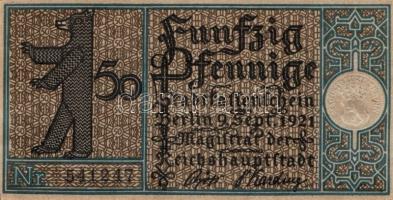 Funfzig
50 Pfennige
Stadtkassenschein
Berlin 9. Sept. 1921
Magistrat der
Reichshauptstadt
Nr. 541247